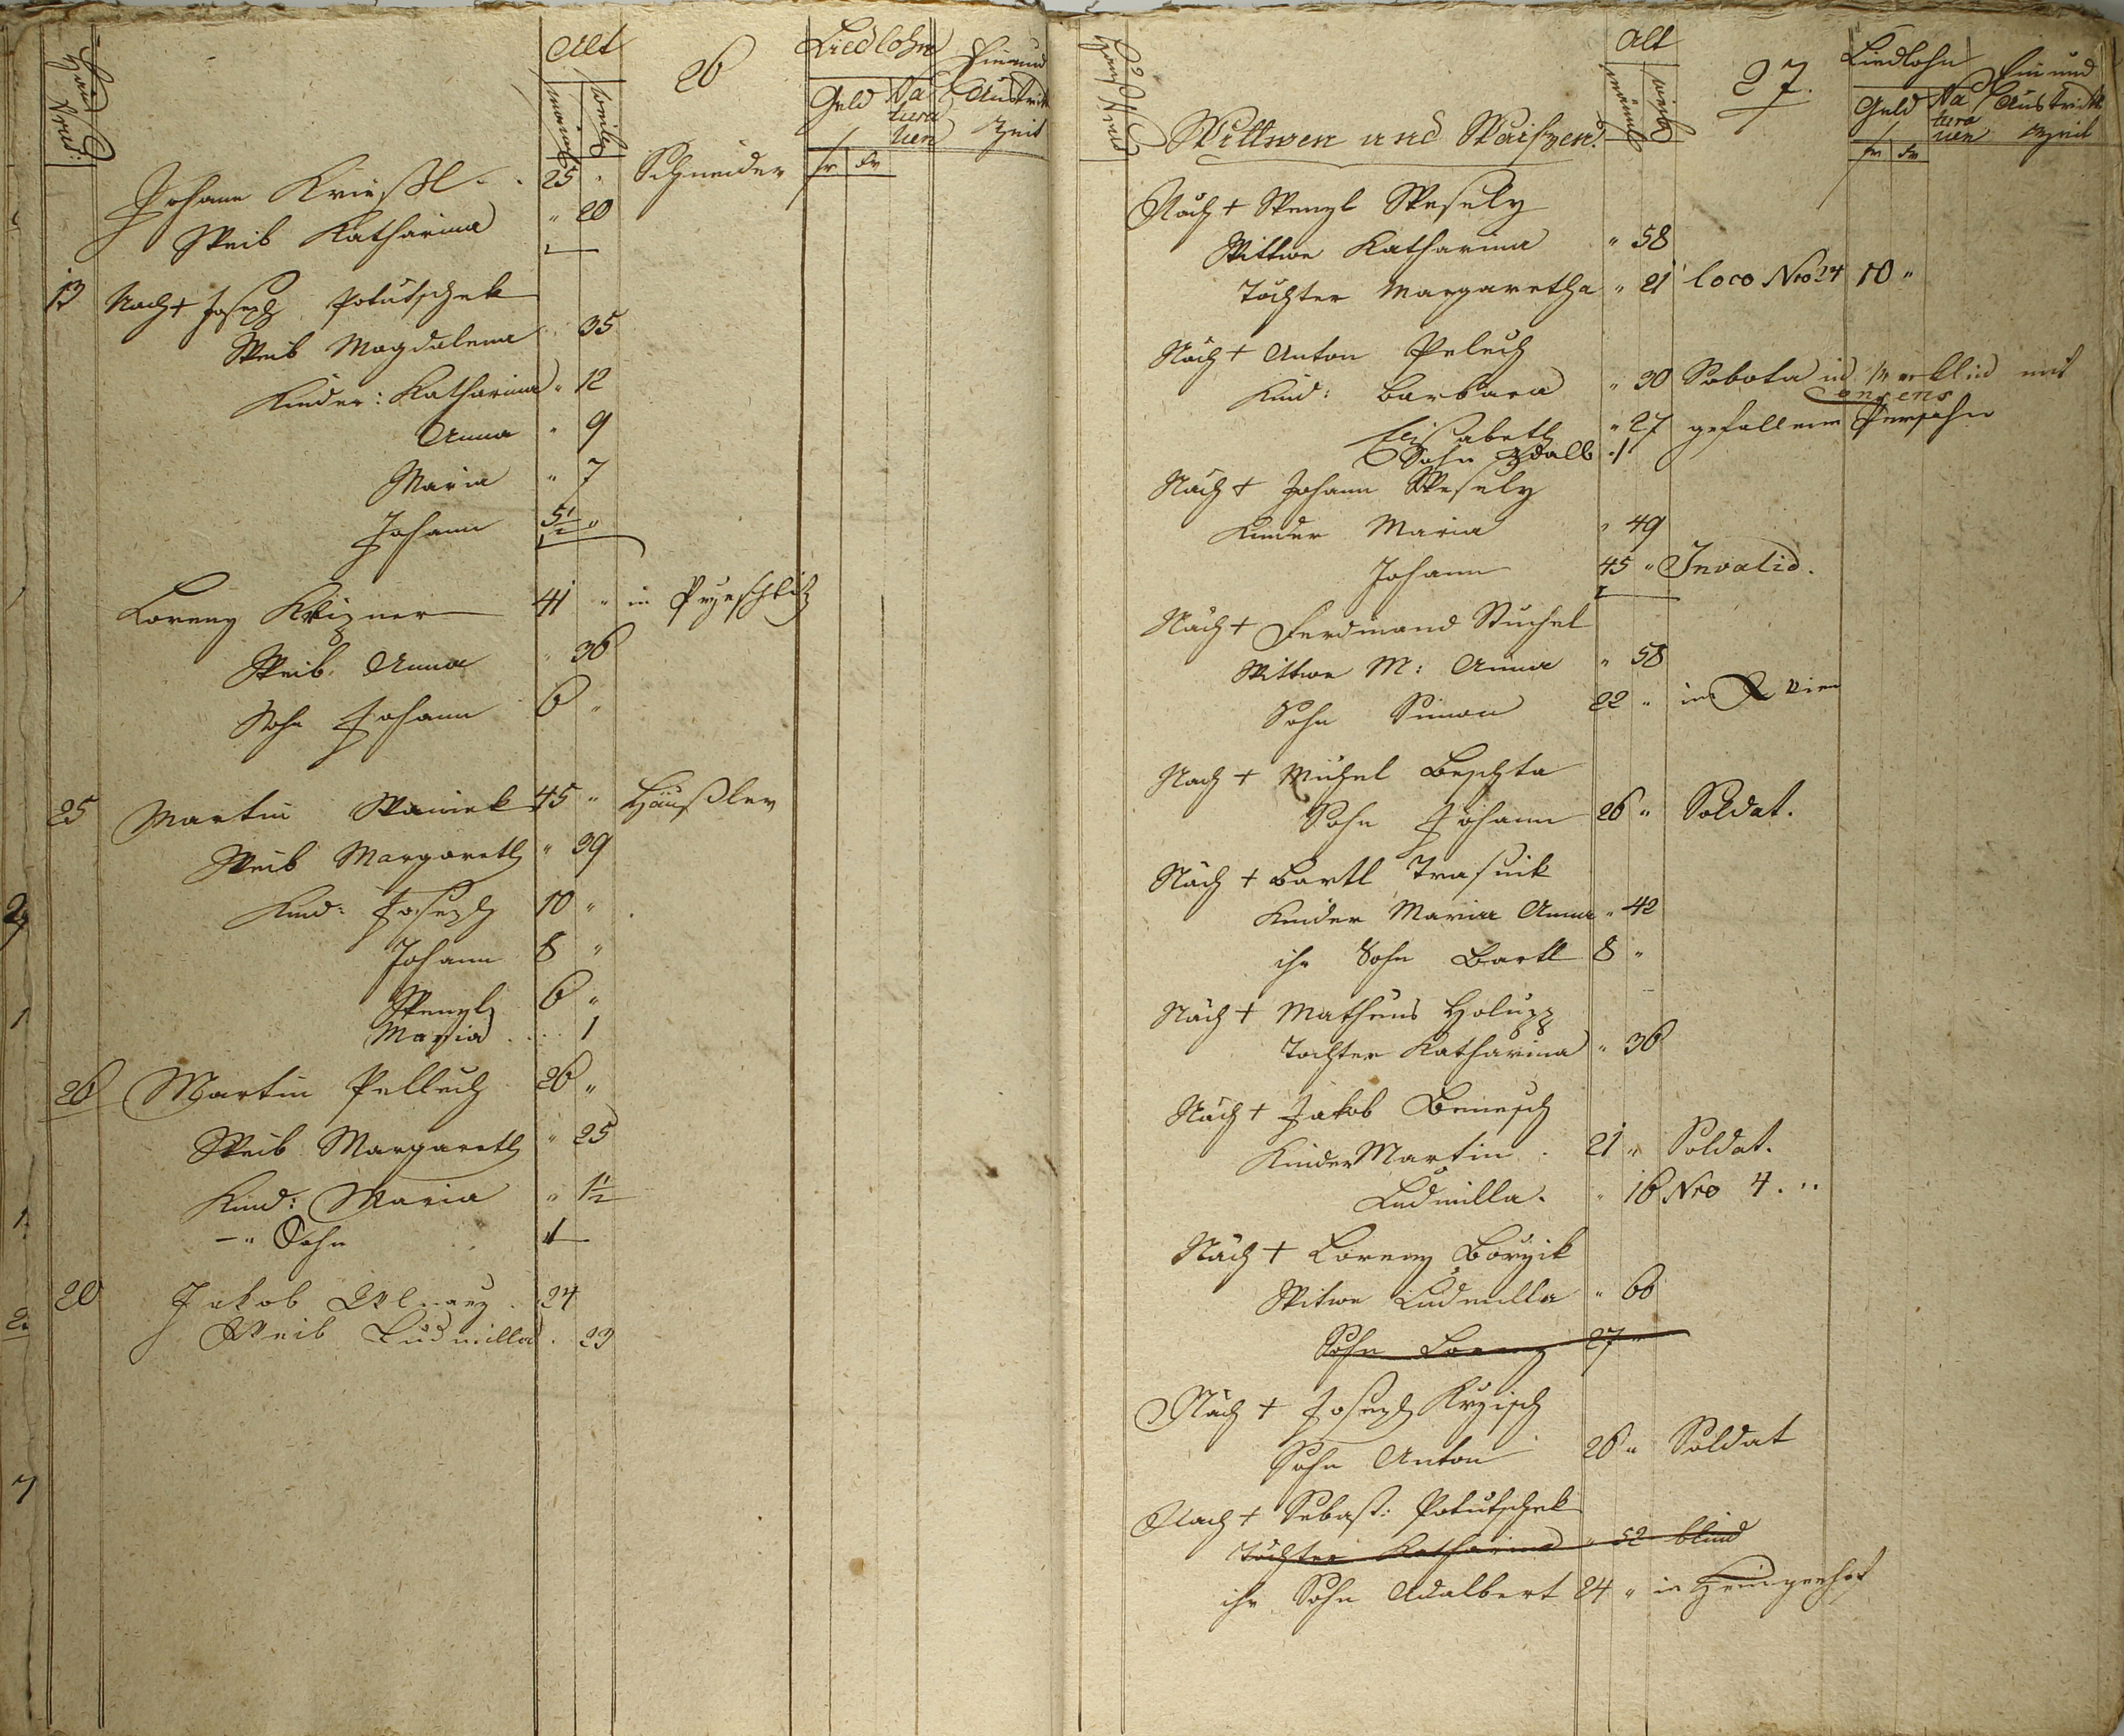 Haus Nrus:
Alt
männl:
weibl:
26
Liedlohn
Geld
Na
tura
lien
fr
kr
Ein und
Austritts
Zeit
Johann " 25 " Schneider
Weib Katharina " 20
13 Nach + Joseph Potutschek
Weib Magdalena " 35
Kinder: Katharina " 12
Anna " 9
Maria " 7
Johann 5½ "
Lorenz 41 " in
Weib Anna " 36
Sohn Johann 6 "
25 Martin 45 " Häußler
Weib Margareth " 39
Kind: Joseph 10 "
Johann 8 "
Wenzl 6 "
Maria 1
26 Martin Pelluch 26 "
Weib Margareth " 25
Kind: Maria " 1½
—" Sohn 1
20 Jakob 24
Weib Ludmilla . 23
Haus Nrus
Alt
männl:
weibl:
27.
Liedlohn
Geld
Na
tura
lien
fr
kr
Ein und
Austritts
Zeit
Wittwen und Waisen.
Nach + Wenzl Wesely
Wittwe Katharina " 58
Tochter Margaretha " 21 loco Nro 24 10 "
Nach + Anton Peluch
Kind: Barbara " 30 Sobota in Merklin mit
Consens
Elisabeth " 27 gefallene Persohn
Sohn Adalb 1
Nach + Johann Wesely
Kinder Maria " 49
Johann 45 " Invalid.
Nach + Ferdinand Stuchel
Wittwe M: Anna " 58
Sohn Simon 22 " in Wien
Nach + Michel Beschta
Sohn Johann 26 " Soldat.
Nach + Bartl Trasnik
Kinder Maria Anna " 42
ihr Sohn Bartl 8 "
Nach + Matheus Holupp
Tochter Katharina " 36
Nach + Jakob Benesch
Kinder Martin . 21 " Soldat.
Ludmilla. " 16 Nro 4. "
Nach + Lorenz
Witwe Ludmilla " 66
Sohn Lorenz 27 "
Nach + Joseph
Sohn Anton 26 " Soldat
Nach + Sebast: Potutschek
Tochter Katharina " 52 blind
ihr Sohn Adalbert 24 " in